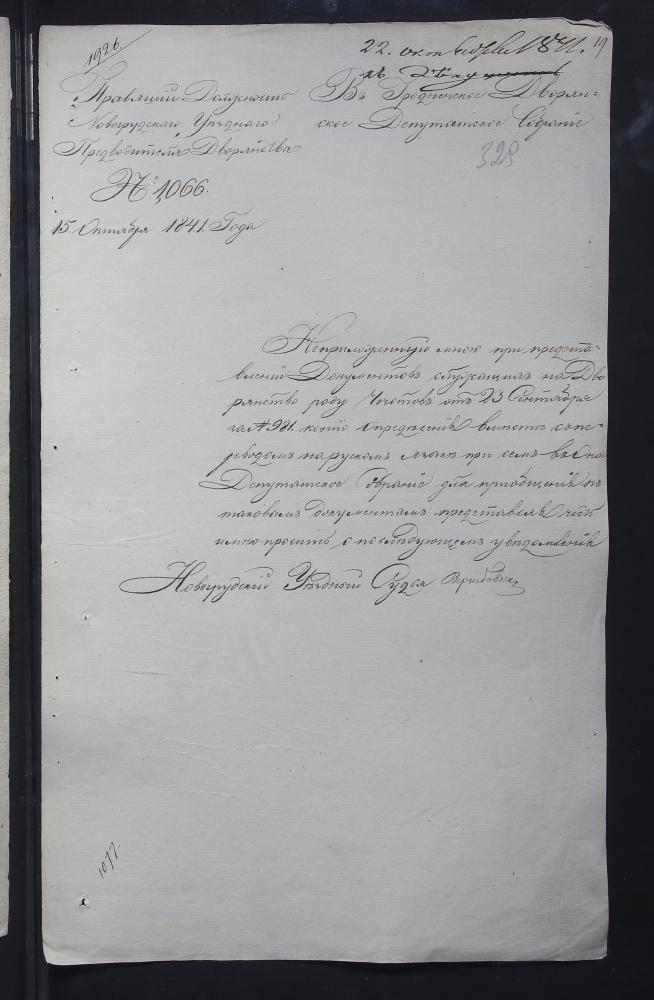 1926.
22. октября 1841.
19
Правящий Должность
Новогрудскаго Уѣзднаго
Предводителя Дворянства
№ 1066.
15 Октября 1841. Года
Въ Гродненское Дворян-
ское Депутатское Собраніе
328
Неприложенную мною при предста-
вленіи Документовъ служащихъ на Дво
рянство роду Чечотовъ отъ 23 Сентября
за № 981. копію опредѣленія вместѣ съ пе-
реводомъ на рускомъ языкѣ при семъ въ оно
Депутатское Собраніе для пріобщенія къ
таковымъ документамъ представляя честь
имѣю просить о послѣдующемъ увѣдомленія
Новогрудскій Уѣздный Судья
1077.